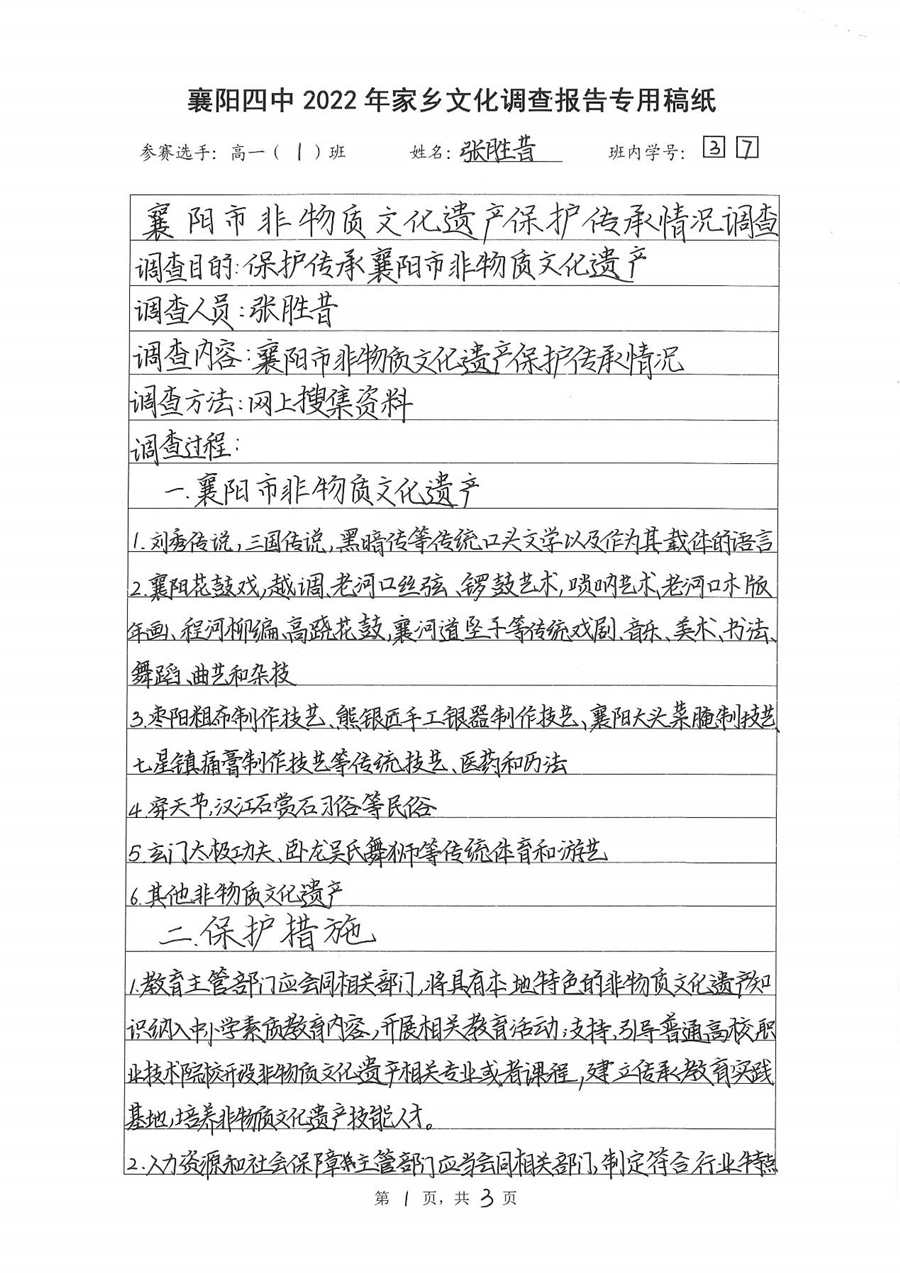 襄阳四中 2022 年家乡文化调查报告专用稿纸
参赛选手：高一（ 1 ）班 姓名：张胜昔 班内学号： 3 7
襄阳市非物质文化遗产保护传承情况调查
调查目的：保护传承襄阳市非物质文化遗产
调查人员：张胜昔
调查内容：襄阳市非物质文化遗产保护传承情况
调查方法：网上搜集资料
调查过程：
一.襄阳市非物质文化遗产
1.刘秀传说，三国传说，黑暗传等传统口头文学以及作为其载体的语言
2.襄阳花鼓戏，越调、老河口丝弦、锣鼓艺术，唢呐艺术、老河口木版
年画、程河柳编、高跷花鼓，襄河道坠子等传统戏剧、音乐、美术、书法、
舞蹈、曲艺和杂技
3.枣阳粗布制作技艺、熊银匠手工银器制作技艺、襄阳大头菜腌制技艺、
七星镇痛膏制作技艺等传统技艺、医药和历法
4.穿天节，汉江石赏石习俗等民俗
5.玄门太极功夫、卧龙吴氏舞狮等传统体育和游艺
6.其他非物质文化遗产
二.保护措施
1.教育主管部门应会同相关部门，将具有本地特色的非物质文化遗产知
识纳入中小学素质教育内容，开展相关教育活动；支持、引导普通高校、职
业技术院校开设非物质文化遗产相关专业或者课程，建立传承教育实践
基地，培养非物质文化遗产技能人才。
2.人力资源和社会保障主管部门应当会同相关部门，制定符合行业特点
第 1 页，共 3 页